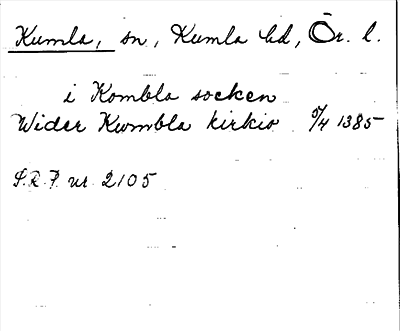 Kumla, sn, Kumla hd, Ör. l.
i Kombla socken
Wider Kwmbla kirkio 5/4 1385
S.R.P. nr 2105